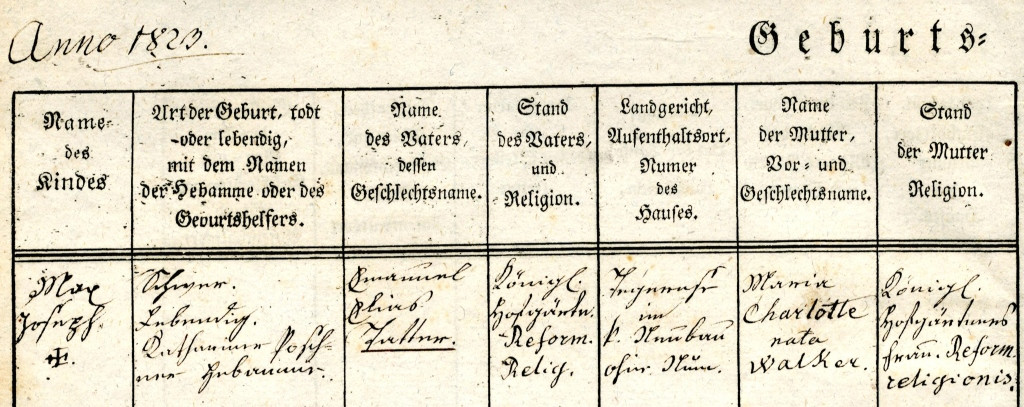 Anno 1823.
Geburts=
Name
des
Kindes
Art der Geburt, todt
oder lebendig,
mit dem Namen
der Hebamme oder des
Geburtshelfers.
Name
des Vaters,
dessen
Geschlechtsname.
Stand
des Vaters,
und
Religion.
Landgericht,
Aufenthaltsort,
Numer
des
Hauses.
Name
der Mutter,
Vor= und
Geschlechtsname.
Stand
der Mutter
Religion.
Max
Joseph.
✠.
Schwer.
Lebendig.
Katharina Posch-
ner Hebamme.
Emanuel
Elias
Tatter.
Königl.
Hofgärtn.
Reform.
Relig.
Tegernse
im
k. Neubau
ohne Num.
Maria
Charlotte
nata
Walker.
Königl.
Hofgärtners
frau. Reform.
religionis.